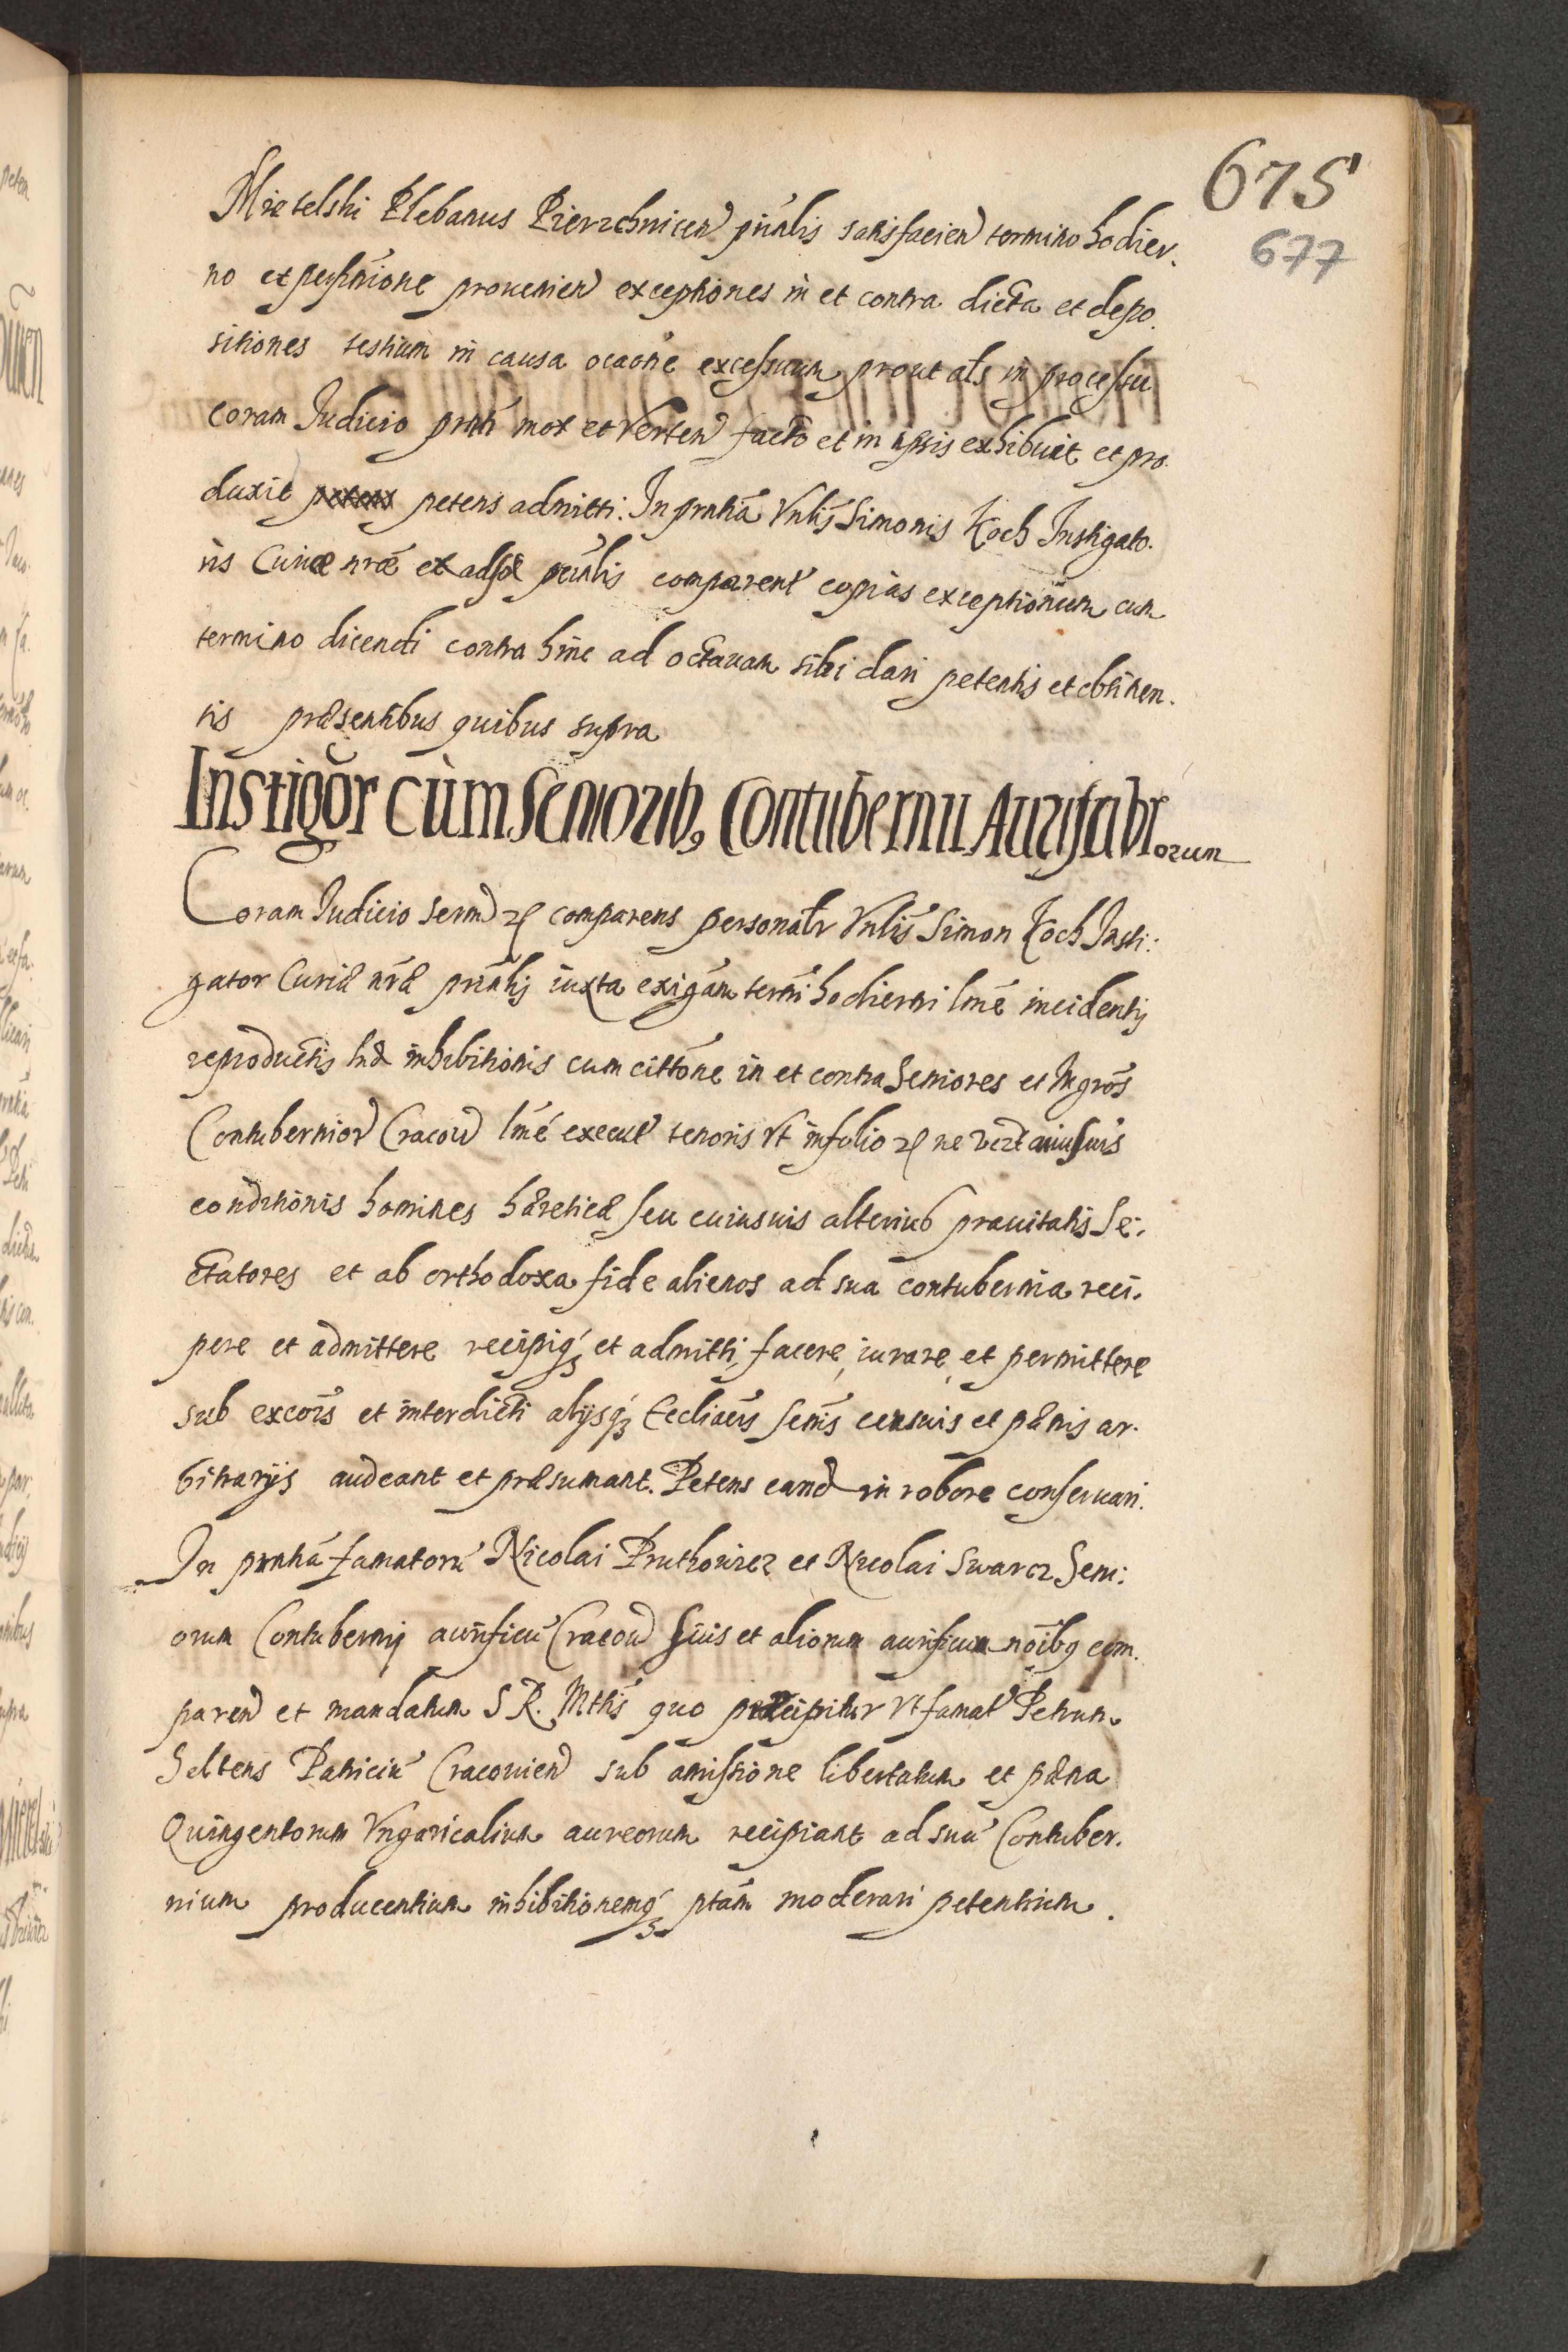 675
677
Mietelski Plebanus Pierzchnicen prñlis satisfacien termino hodier.
no et provenien exceptiones in et contra dicta et depo.
sitiones testium in causa ocaone excessuum prout als in processu
coram Judicio pnti mot et Verten facto et in exhibuit et pro.
duxit petens admitti. In pnntia Vnlis Simonis Koch Instigato.
ris Curiæ nræ ex adso prnlis comparent copias exceptionum cum
termino dicendi contra hinc ad octavam sibi dari petentis et obtinen.
tis præsentibus quibus supra
Instigor cum Seniorib9 Contubernii Aurifabrorum
Coram Judicio Serm comparens personalr Vnlis Simon Koch Insti:
gator Curiæ nræ prnlis iuxta exigam termi hodierni lme incidentis
reproductis lræ inhibitionis cum cittone in et contra Seniores et Mgros
Contubernior Cracov lme execut tenoris Vt in folio ne
conditionis homines hæreticæ seu cuiusvis alterius pravitatis Se:
ctatores et ab orthodoxa fide alienos ad sua contubernia reci.
pere et admittere recipiq3 et admitti, facere, iurare, et permittere
sub excois et interdicti alijsq3 Eccliacis senis censuris et pænis ar.
bitrarijs audeant et præsumant. Petens eand in robore conservari.
In pnntia famatoru Nicolai Pruthowicz et Nicolai Swarcz Seni:
orum Contubernij aurificu Cracov suis et aliorum aurificum noibg com.
paren et mandatum S R. Mtis quo præcipitur Vt famat Petrum
Seltens Patriciu Cracovien sub amissione libertatum et pæna
Quingentorum Vngaricalium aureorum recipiant ad suu Contuber.
nium producentium inhibitionemq3 ptam moderari petentium.